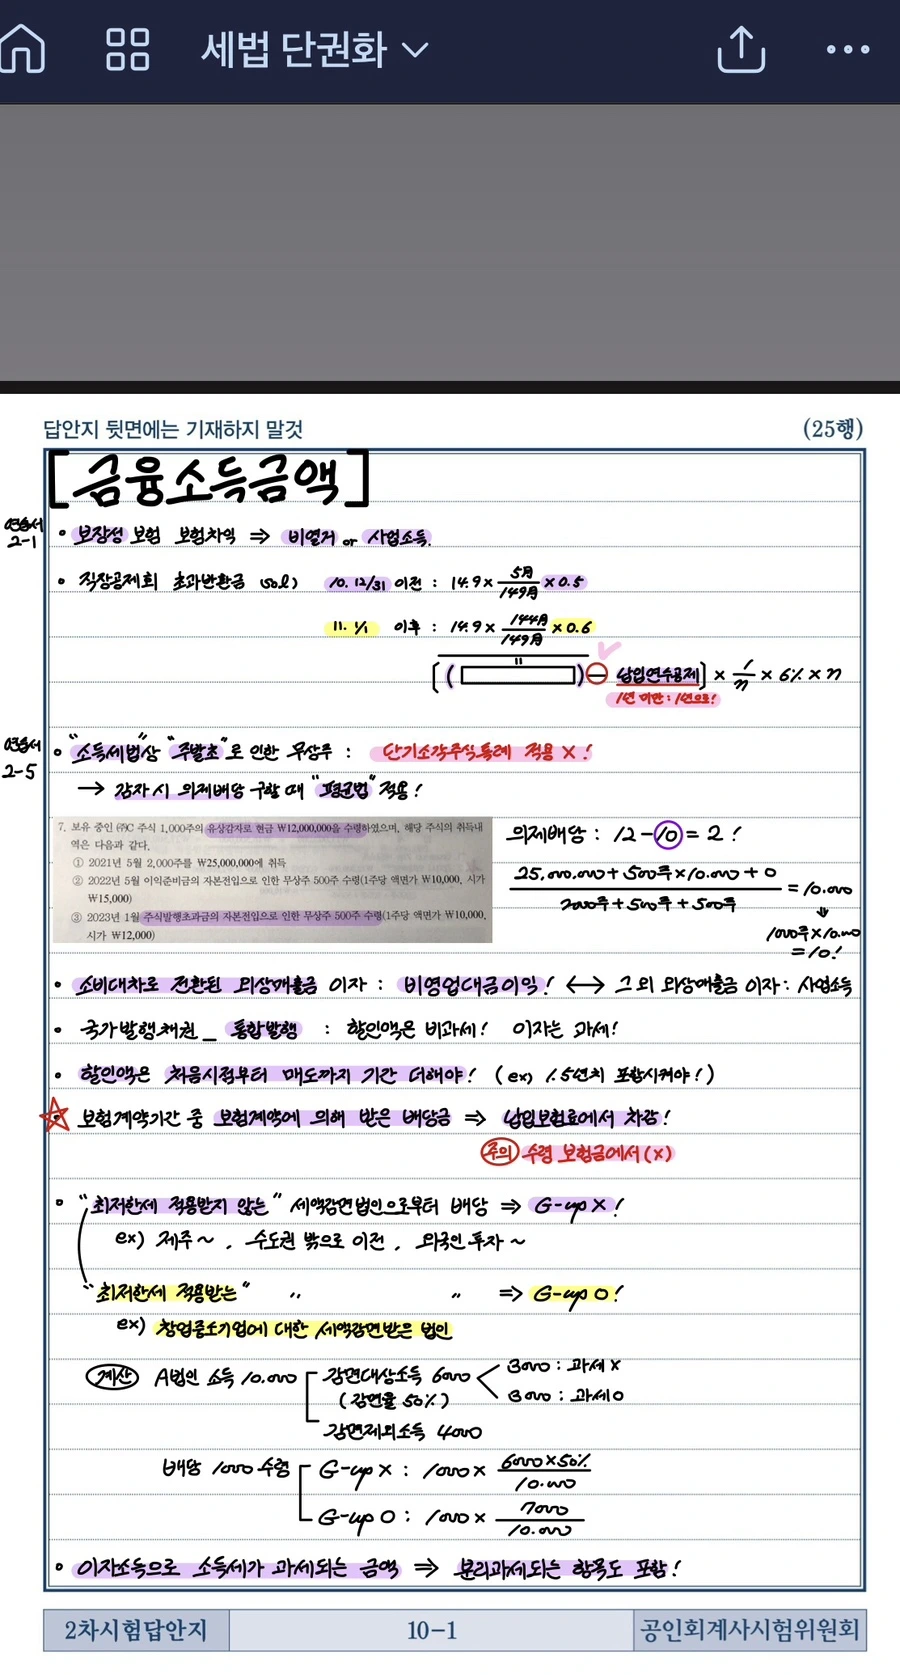 세법 단권화
답안지 뒷면에는 기재하지 말것 (25행)
[금융소득금액]
연습서 2-1
• 보장성 보험 보험차익 ⇒ 비열거 or 사업소득.
• 직장공제회 초과반환금 (sol) 10. 12/31 이전 : 14.9 × 5月/149月 × 0.5
11. 1/1 이후 : 14.9 × 144月/149月 × 0.6
[( ) ⊖ 납입연수공제] × 1/n × 6% × n
1년 미만 : 1년으로!
연습서 2-5
• "소득세법"상 "주발초"로 인한 무상주 : 단기소각주식특례 적용 X!
→ 감자시 의제배당 구할 때 "평균법" 적용!
7. 보유 중인 ㈜C 주식 1,000주의 유상감자로 현금 ₩12,000,000을 수령하였으며, 해당 주식의 취득내
역은 다음과 같다.
① 2021년 5월 2,000주를 ₩25,000,000에 취득
② 2022년 5월 이익준비금의 자본전입으로 인한 무상주 500주 수령(1주당 액면가 ₩10,000, 시가
₩15,000)
③ 2023년 1월 주식발행초과금의 자본전입으로 인한 무상주 500주 수령(1주당 액면가 ₩10,000,
시가 ₩12,000)
의제배당 : 12 - 10 = 2!
25,000,000 + 500주 × 10,000 + 0 / 2000주 + 500주 + 500주 = 10,000
↓
1000주 × 10,000
= 10!
• 소비대차로 전환된 외상매출금 이자 : 비영업대금이익! ↔ 그 외 외상매출금 이자 : 사업소득
• 국가발행채권 _ 통합발행 : 할인액은 비과세! 이자는 과세!
• 할인액은 처음시점부터 매도까지 기간 더해야! (ex) 1.5년치 포함시켜야!)
☆ 보험계약기간 중 보험계약에 의해 받은 배당금 ⇒ 납입보험료에서 차감!
주의 수령 보험금에서 (x)
• "최저한세 적용받지 않는" 세액감면법인으로부터 배당 ⇒ G-up X!
ex) 제주~ , 수도권 밖으로 이전 , 외국인 투자~
"최저한세 적용받는" 〃 〃 ⇒ G-up O!
ex) 창업중소기업에 대한 세액감면받은 법인
계산 A법인 소득 10,000 감면대상소득 6000 3000 : 과세 X
(감면율 50%) 3000 : 과세 O
감면제외소득 4000
배당 1000 수령 G-up X : 1000 × 6000×50%/10,000
G-up O : 1000 × 7000/10,000
• 이자소득으로 소득세가 과세되는 금액 ⇒ 분리과세되는 항목도 포함!
2차시험답안지 10-1 공인회계사시험위원회